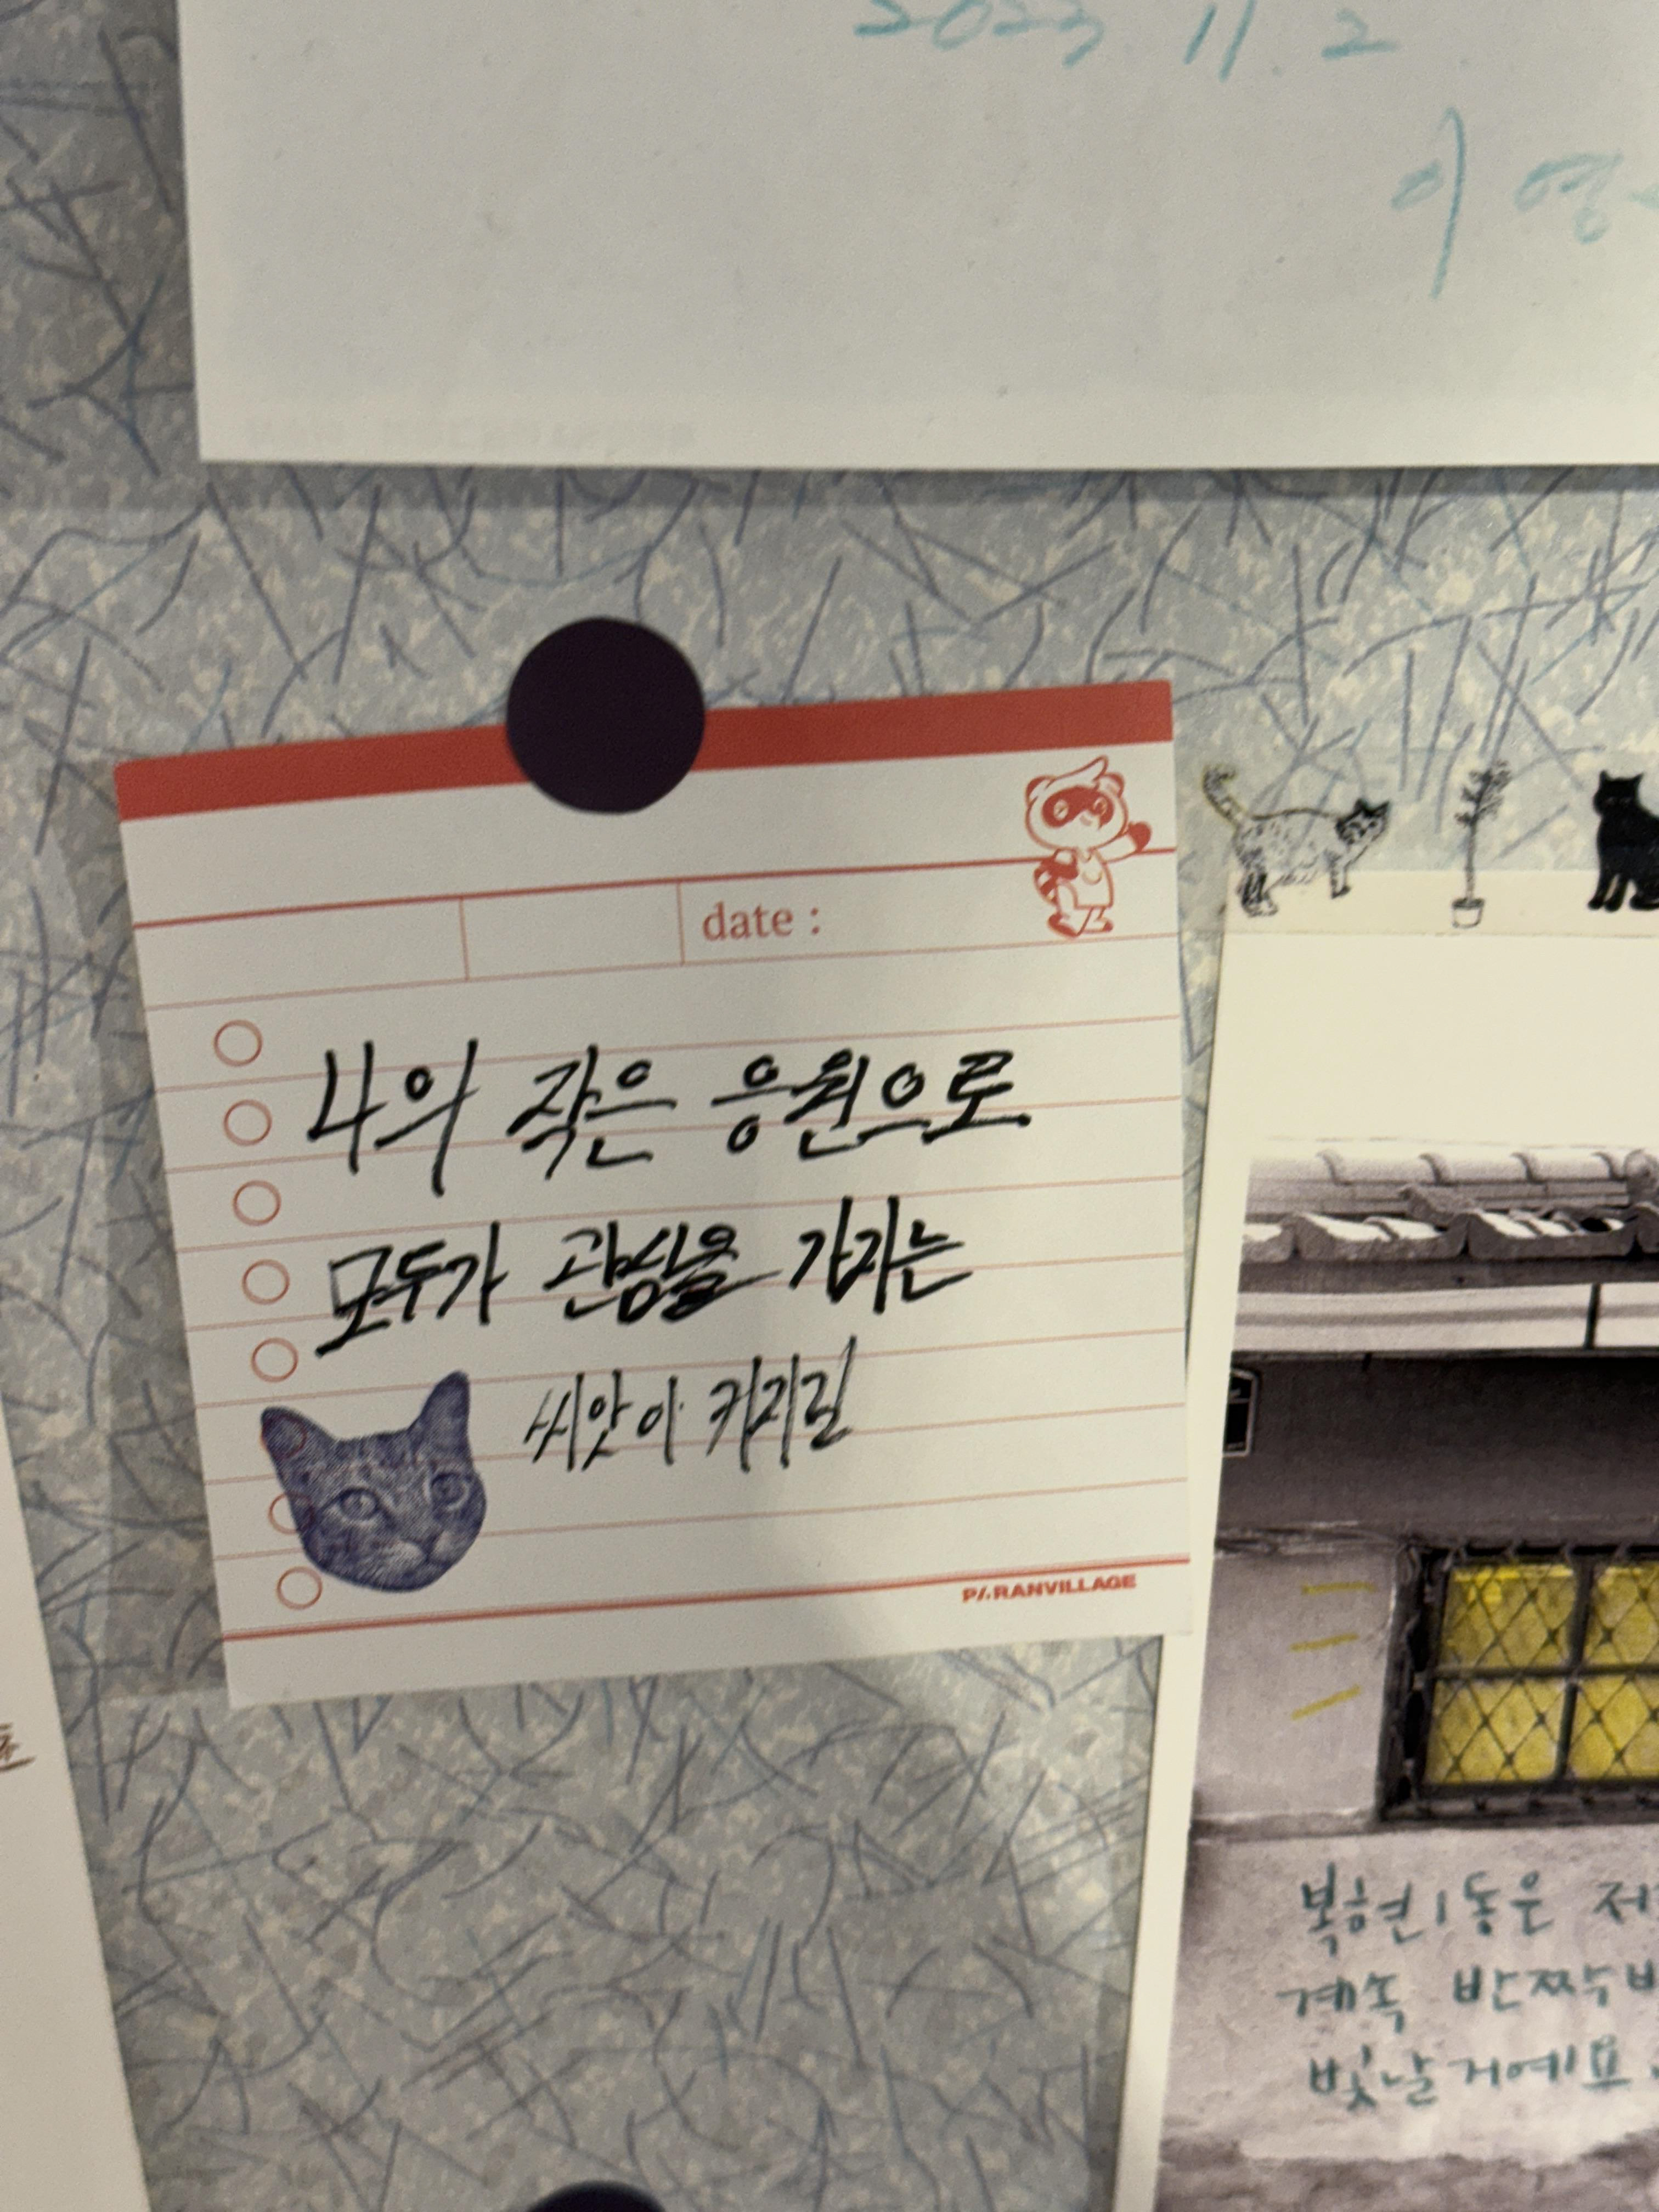 2023. 11. 2
이영
date :
나의 작은 응원으로
모두가 관심을 가지는
씨앗이 커지길
PARANVILLAGE
복현1동은
계속
빛날거예요